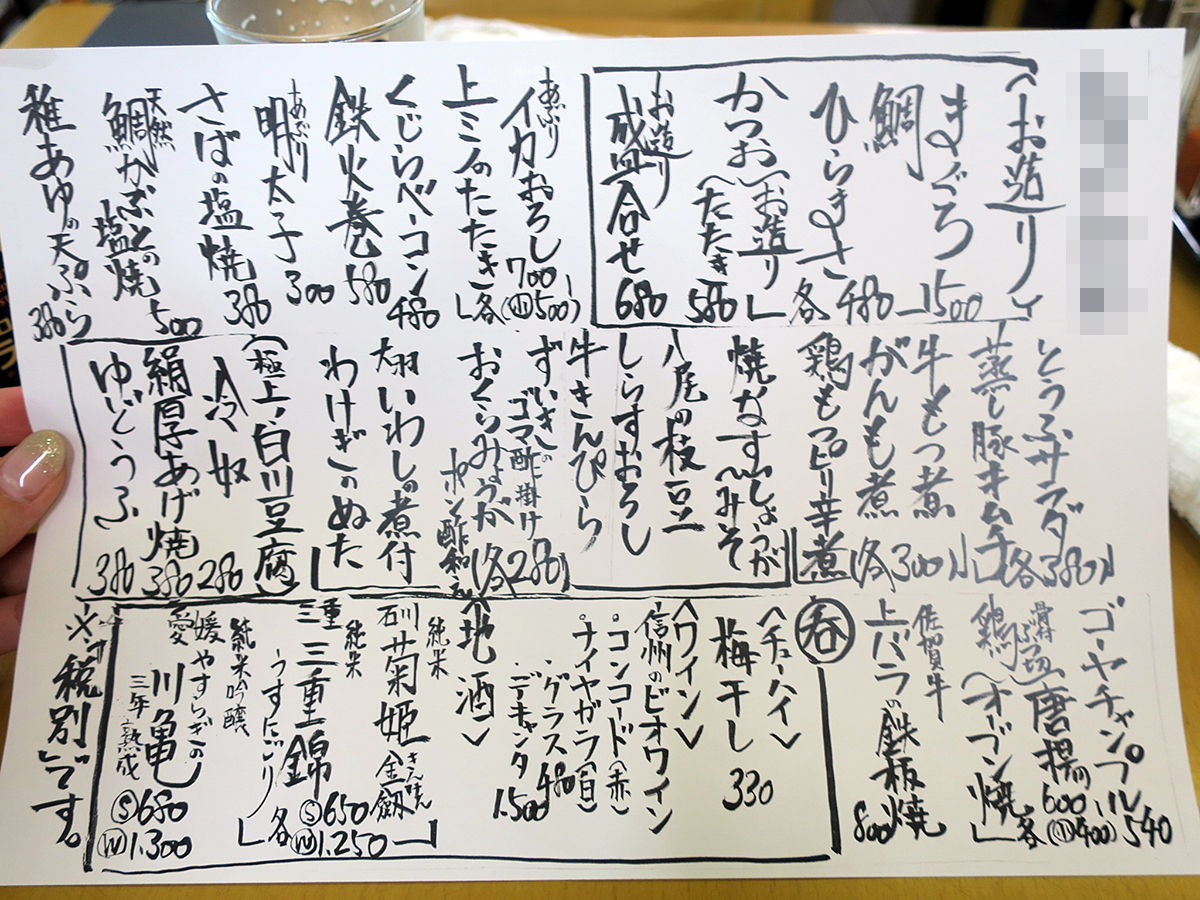 〈お造り〉
まぐろ 1500
鯛
ひらまさ 各480
かつお(お造り
(たたき 580
お造り
盛合せ 680
あぶり
イカおろし 700(小500)
上ミノのたたき 各
くじらベーコン 480
鉄火巻 580
あぶり
明太子 300
さばの塩焼 380
天然
鯛かぶとの塩焼 500
稚あゆの天ぷら 380
とうふサラダ
蒸し豚キムチ (各380)
牛もつ煮
がんも煮 (各300)
鶏もつピリ辛煮
焼なす(しょうが
(みそ
八尾の枝豆
しらすおろし
牛きんぴら
ずいきの
ゴマ酢掛け (各280)
おくらみょうが
ポン酢和え
大羽いわしの煮付
わけぎのぬた
(極上・白川豆腐)
冷奴 280
絹厚あげ焼 380
ゆどうふ 380
ゴーヤチャンプル 540
骨ブツ切
鶏(唐揚 600
(オーブン焼 各(小400)
佐賀牛
上バラの鉄板焼 800
春
〈チューハイ〉
梅干し 330
〈ワイン〉
信州のビオワイン
・コンコード(赤)
・ナイヤガラ(白)
・グラス 480
・デキャンタ 1.500
〈地酒〉
純米
石川 菊姫 金劔
純米
三重 三重錦 S650 W1.250
うすにごり 各
純米吟醸
愛媛 やすらぎの
川亀 S680
三年熟成 W1.300
※「税別」です。